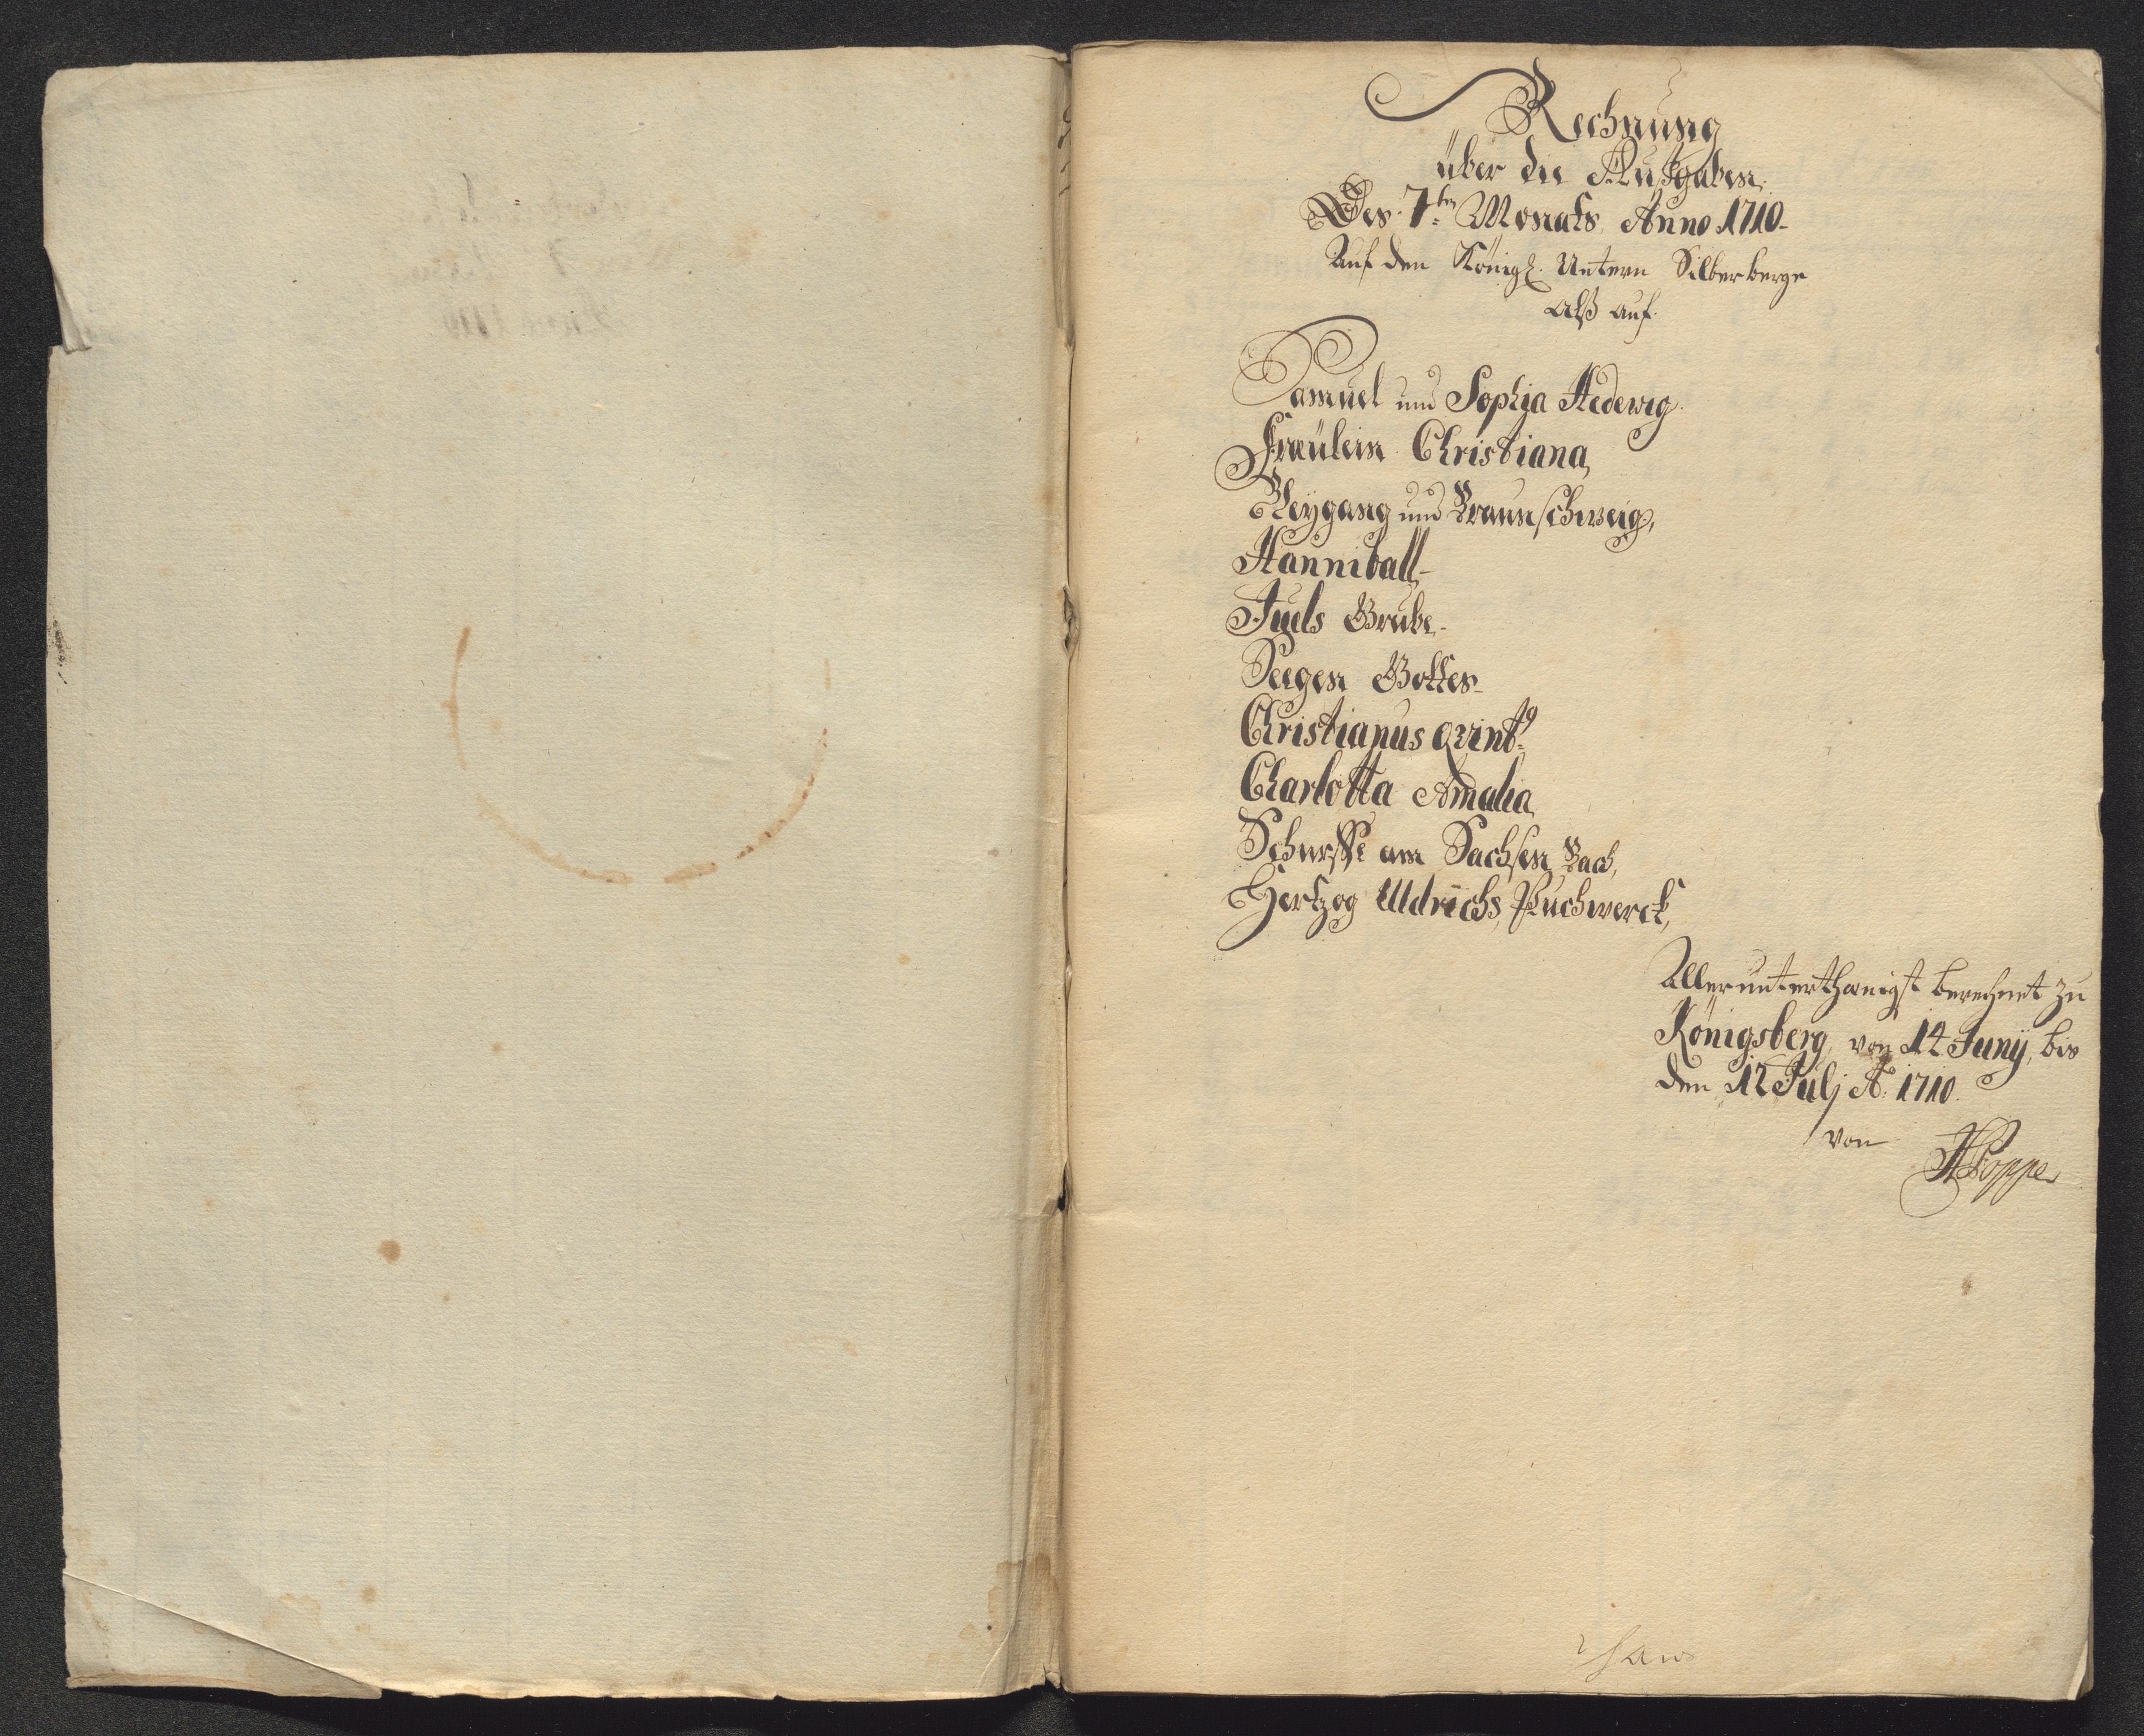 Rechnung
über die Außgaben
Des 7ten Monats Anno 1710
Auf den Königl. Untern Silberberge
alß auf
Samuel und Sophia Hedewig
Freülein Christiana,
Neügang und Braunschweig,
Hanniball
Juels Grube
Seegen Gottes
Christianus Qvint9
Charlotta Amalia
Schurffe am Sachsen Bach,
Hertzog Uldrichs Puchwerck,
Allerunterthänigst berechnet zu
Königsberg, von 14 Junÿ, bis
den 12 Julj Ao. 1710
von HPoppe